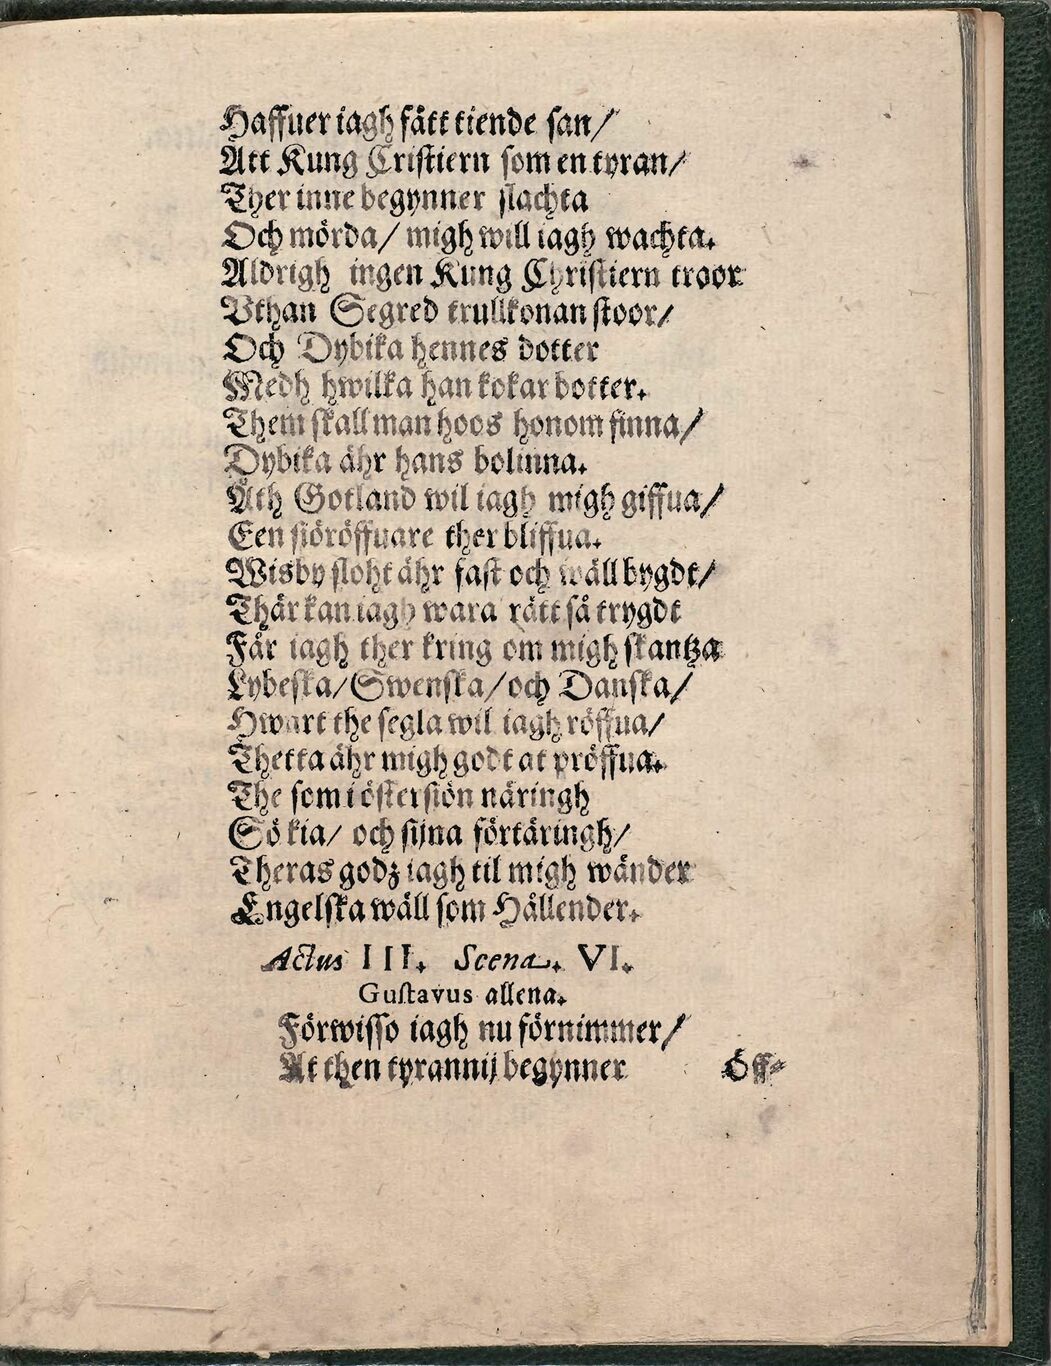 Haffuer iagh fått tiende san/
Att Kung Cristiern som en tyran/
Ther inne begynner slachta
Och mörda/ migh will iagh wachta.
Aldrigh ingen Kung Christiern troor
Vthan Segred trullkonan stoor/
Och Dybika hennes dotter
Medh hwilka han kokar botter.
Them skall man hoos honom finna/
Dybika ähr hans bolinna.
Åth Gotland wil iagh migh giffua/
Een siöröffuare ther bliffua.
Wisby sloht ähr fast och wäll bygdt/
Thär kan iagh wara rätt så trygdt
Får iagh ther kring om migh skantza
Lybeska/ Swenska/ och Danska/
Hwart the segla wil iagh röffua/
Thetta ähr migh godt at pröffua.
The som i östersiön näringh
Sökia/ och sijna förtäringh/
Theras godz iagh til migh wänder
Engelska wäll som Hållender.
Actus III. Scena. VI.
Gustavus allena.
Förwisso iagh nu förnimmer/
At then tyrannij begynner
Öff-